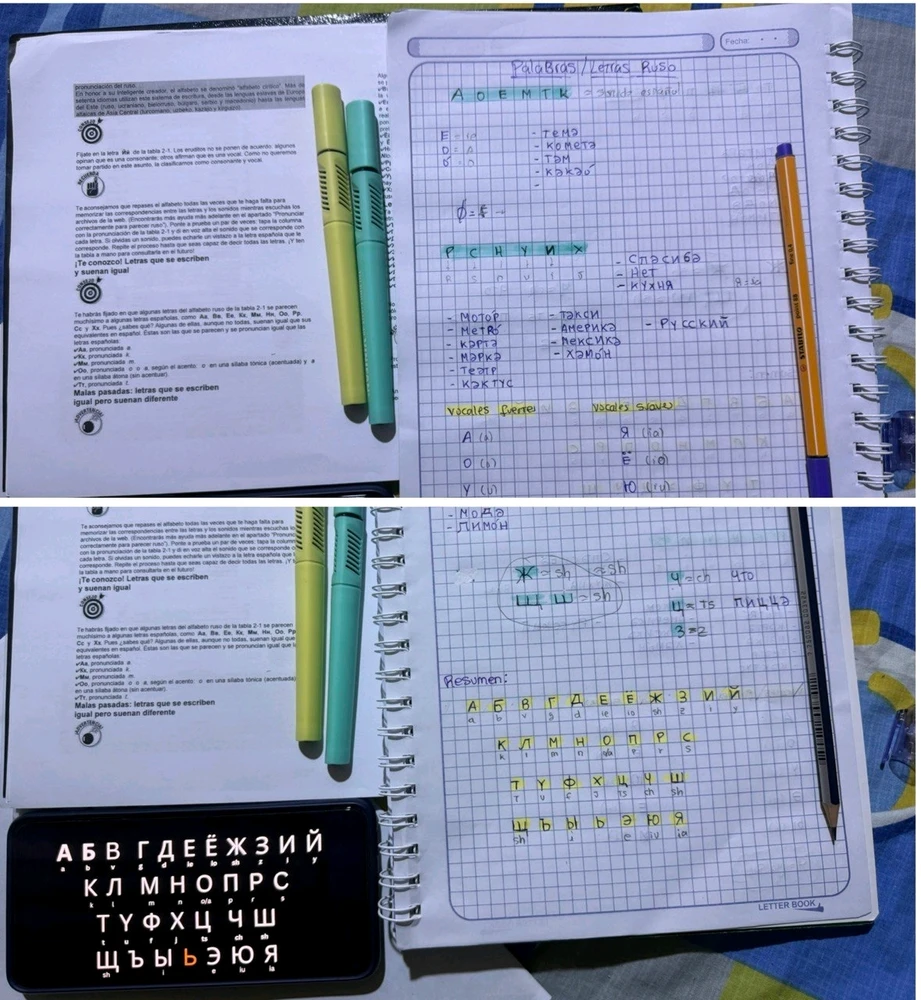 pronunciación del ruso.
En honor a su inteligente creador, el alfabeto se denominó "alfabeto cirílico". Más de
setenta idiomas utilizan este sistema de escritura, desde las lenguas eslavas de Europa
del Este (ruso, ucraniano, bielorruso, búlgaro, serbio y macedonio) hasta las lenguas
altaicas de Asia Central (turcomano, uzbeko, kazajo y kirguiso).
CONSEJO
Fíjate en la letra Йй de la tabla 2-1. Los eruditos no se ponen de acuerdo: algunos
opinan que es una consonante; otros afirman que es una vocal. Como no queremos
tomar partido en este asunto, la clasificamos como consonante y vocal.
RECUERDA
Te aconsejamos que repases el alfabeto todas las veces que te haga falta para
memorizar las correspondencias entre las letras y los sonidos mientras escuchas los
archivos de la web. (Encontrarás más ayuda más adelante en el apartado "Pronunciar
correctamente para parecer ruso"). Ponte a prueba un par de veces: tapa la columna
con la pronunciación de la tabla 2-1 y di en voz alta el sonido que se corresponde con
cada letra. Si olvidas un sonido, puedes echarle un vistazo a la letra española que le
corresponde. Repite el proceso hasta que seas capaz de decir todas las letras. ¡Y ten
la tabla a mano para consultarla en el futuro!
¡Te conozco! Letras que se escriben
y suenan igual
CONSEJO
Te habrás fijado en que algunas letras del alfabeto ruso de la tabla 2-1 se parecen
muchísimo a algunas letras españolas, como Аа, Вв, Ее, Кк, Мм, Нн, Оо, Рр,
Сс y Хх. Pues ¿sabes qué? Algunas de ellas, aunque no todas, suenan igual que sus
equivalentes en español. Estas son las que se parecen y se pronuncian igual que las
letras españolas:
✓Аа, pronunciada a.
✓Кк, pronunciada k.
✓Мм, pronunciada m.
✓Оо, pronunciada o o a, según el acento: o en una sílaba tónica (acentuada) y a
en una sílaba átona (sin acentuar).
✓Тт, pronunciada t.
Malas pasadas: letras que se escriben
igual pero suenan diferente
¡ADVERTENCIA!
Fecha:
Palabras/Letras Ruso
А О Е М Т К = sonido español
E = ie
- тема
- комета
- там
- какао
Р С Н У И Х
- Спасиба
- Нет
- кухня
- мотор
- метро
- карта
- марка
- театр
- кактус
- такси
- Америка
- мексика
- хамон
- Русский
vocales fuertes
vocales suave
А (a)
Я (ia)
О (o)
Ё (io)
У (u)
Ю (iu)
STABILO point 88
- мода
- лимон
Ж = sh = sh
Щ Ш = sh
Ч = ch что
Ц = ts пицца
З = z
Resumen:
А Б В Г Д Е Ё Ж З И Й
a b v g d ie io sh z i y
К Л М Н О П Р С
k l m n o/a p r s
Т У Ф Х Ц Ч Ш
т u f j ts ch sh
Щ Ъ Ы Ь Э Ю Я
sh i e iu ia
LETTER BOOK
А Б В Г Д Е Ё Ж З И Й
a b v g d ie io sh z i y
К Л М Н О П Р С
k l m n o/a p r s
Т У Ф Х Ц Ч Ш
t u f j ts ch sh
Щ Ъ Ы Ь Э Ю Я
sh i e iu ia